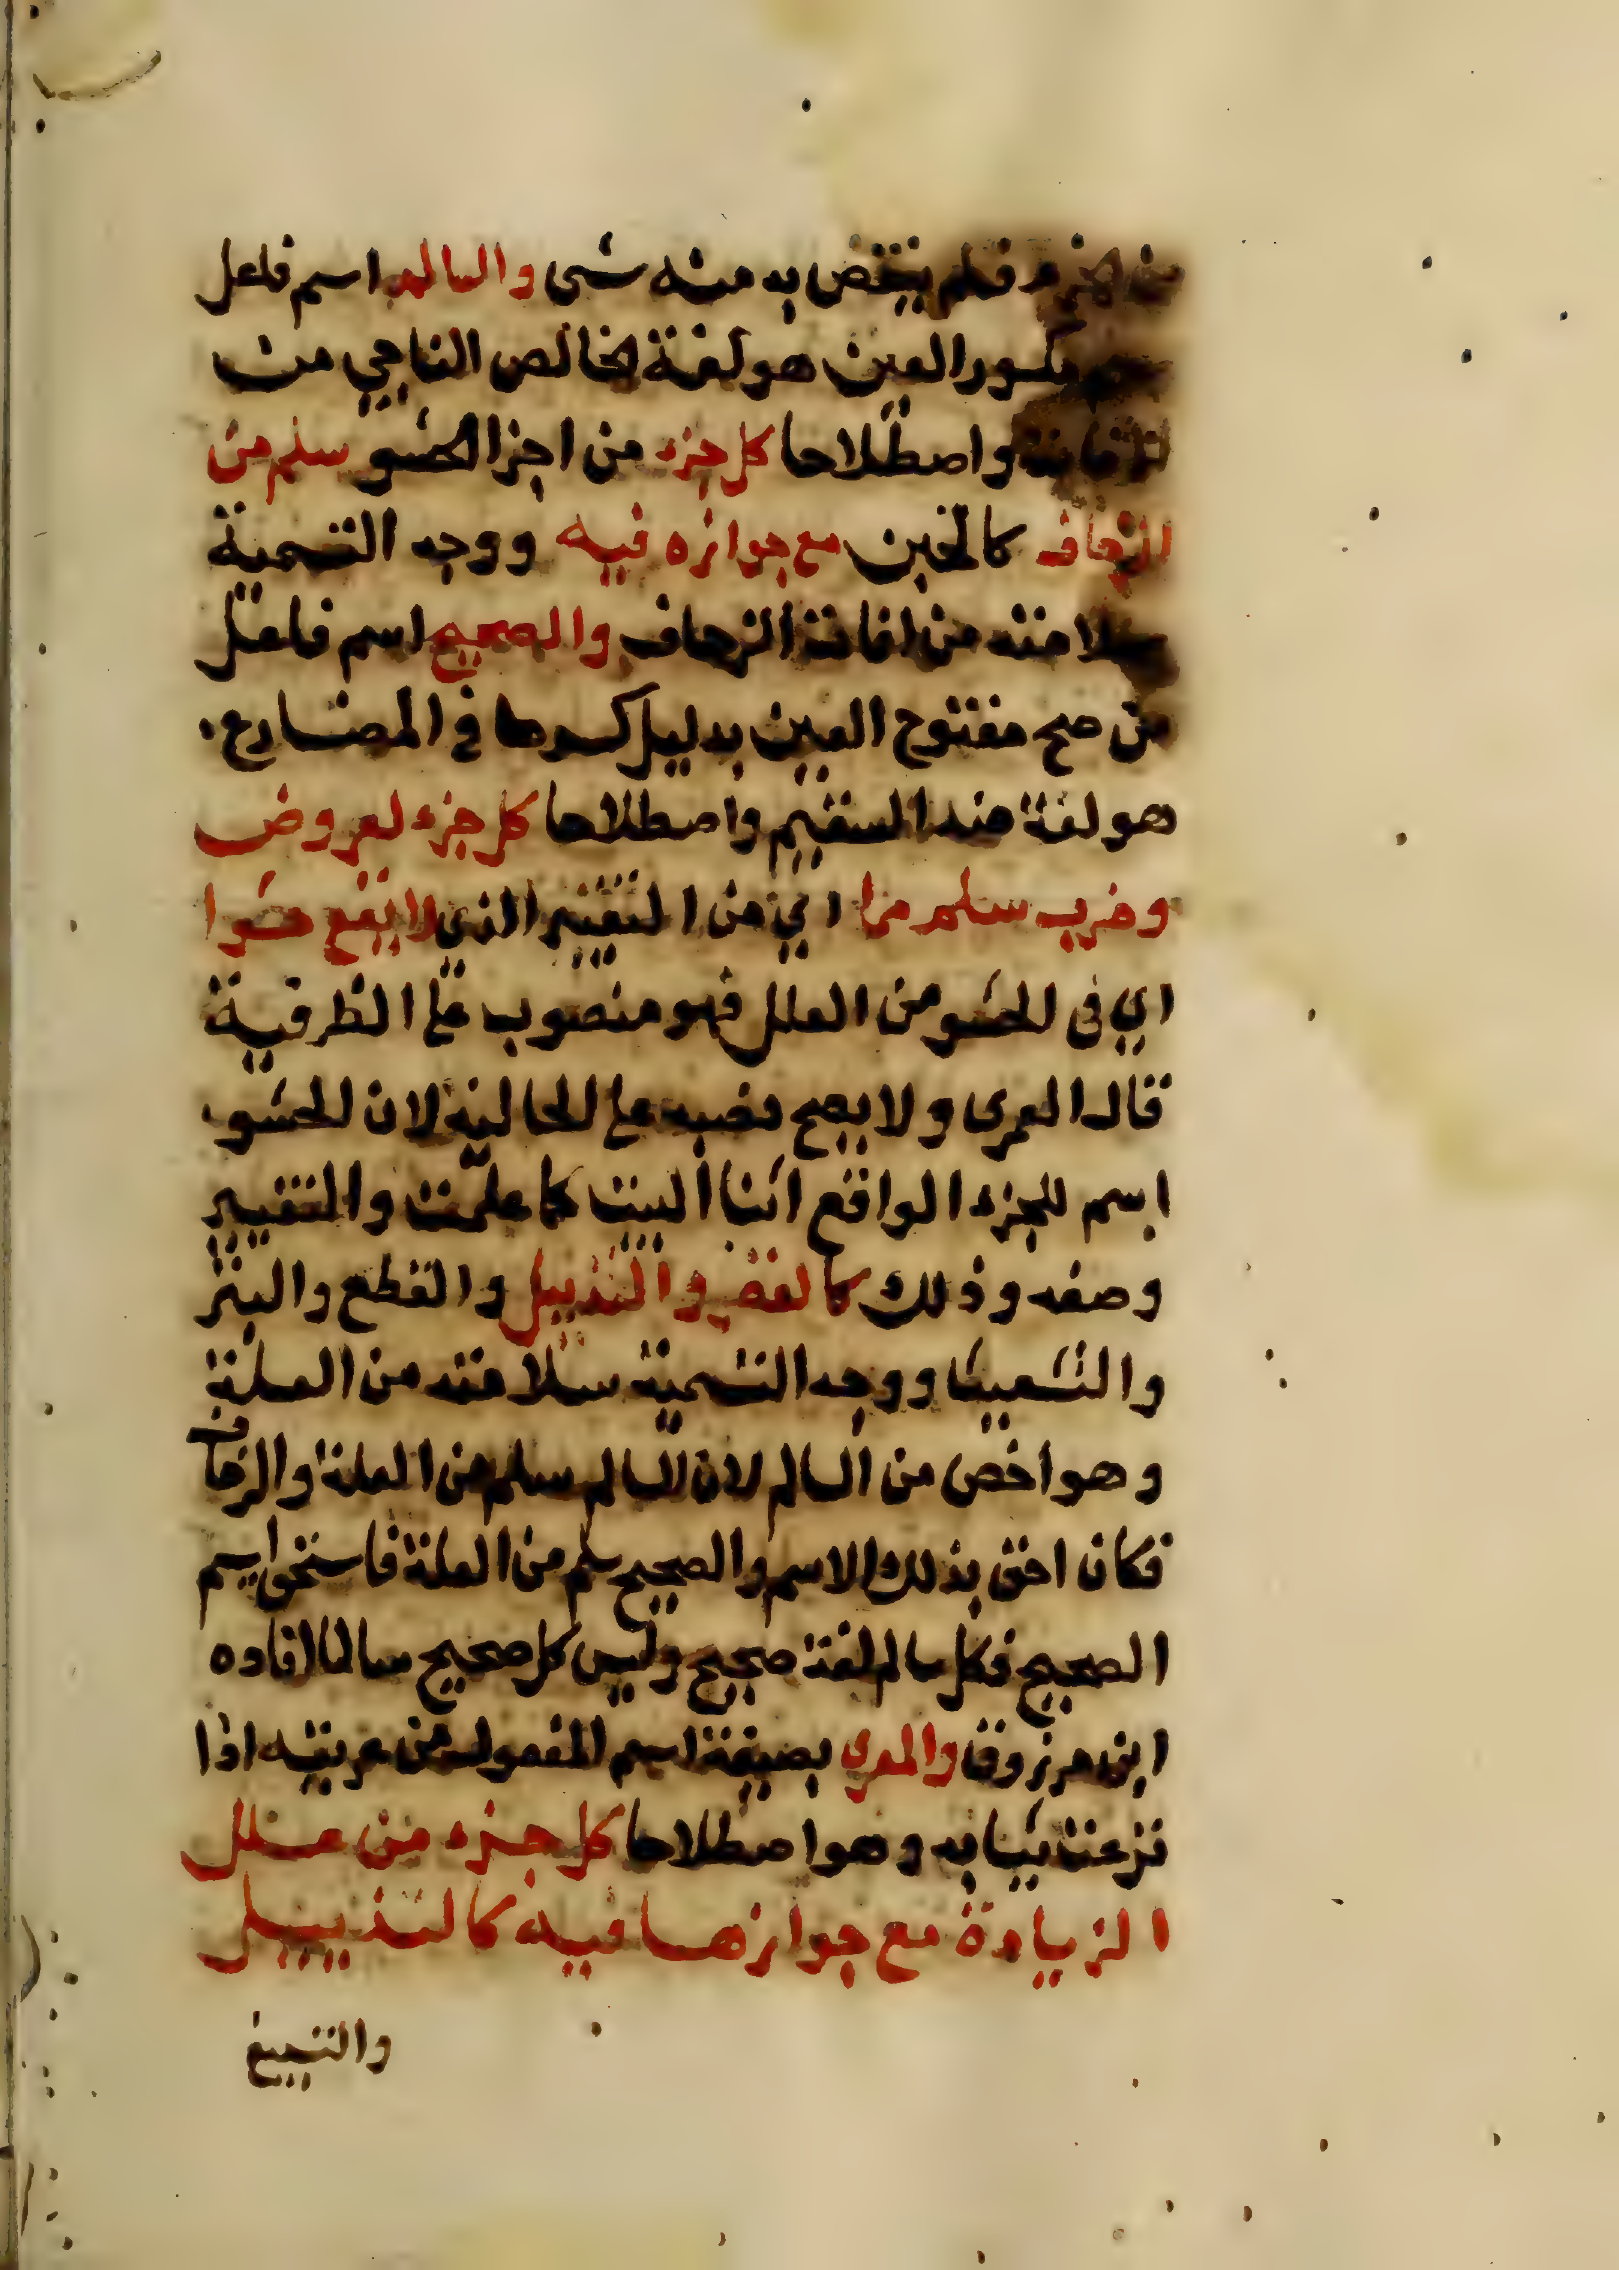 من الخرم فلم ينقص به منه شى والسالم اسم فاعل
مكسور العين هو لغة الخالص الناجي من
واصطلاحا كل جزء من اجزا الحشو سلم من
الزحاف كالخبن مع جوازه فيه ووجه التسمية
سلامته من افاة الزحاف والصحيح اسم فاعل
من صح مفتوح العين بدليل كسرها في المضارع.
هو لغة ضد السقيم واصطلاحا كل جزء لعروض
وضرب سلم مما اي من التغيير الذي لا يقع حشوا
اي فى الحشو من العلل فهو منصوب على الظرفية
قال الغمرى ولا يصح نصبه على الحالية لان الحشو
اسم للجزء الواقع اثنا البيت كما علمت والتغيير
وصفه وذلك كالقصر والتذييل والقطع والبتر
والتشعيث ووجه التسمية سلامته من العلة
وهو اخص من السالم لان السالم سلم من العلة والزحاف
فكان احق بذلك الاسم والصحيح سلم من العلة فاستحق اسم
الصحيح فكل سالم لغة صحيح وليس كل صحيح سالما افاده
ابن مرزوق والمعرى بصيغة اسم المفعول من عريته اذا
نزعت ثيابه وهو اصطلاحا كل جزء من علل
الزيادة مع جوازها فيه كالتذييل
والتسبيغ